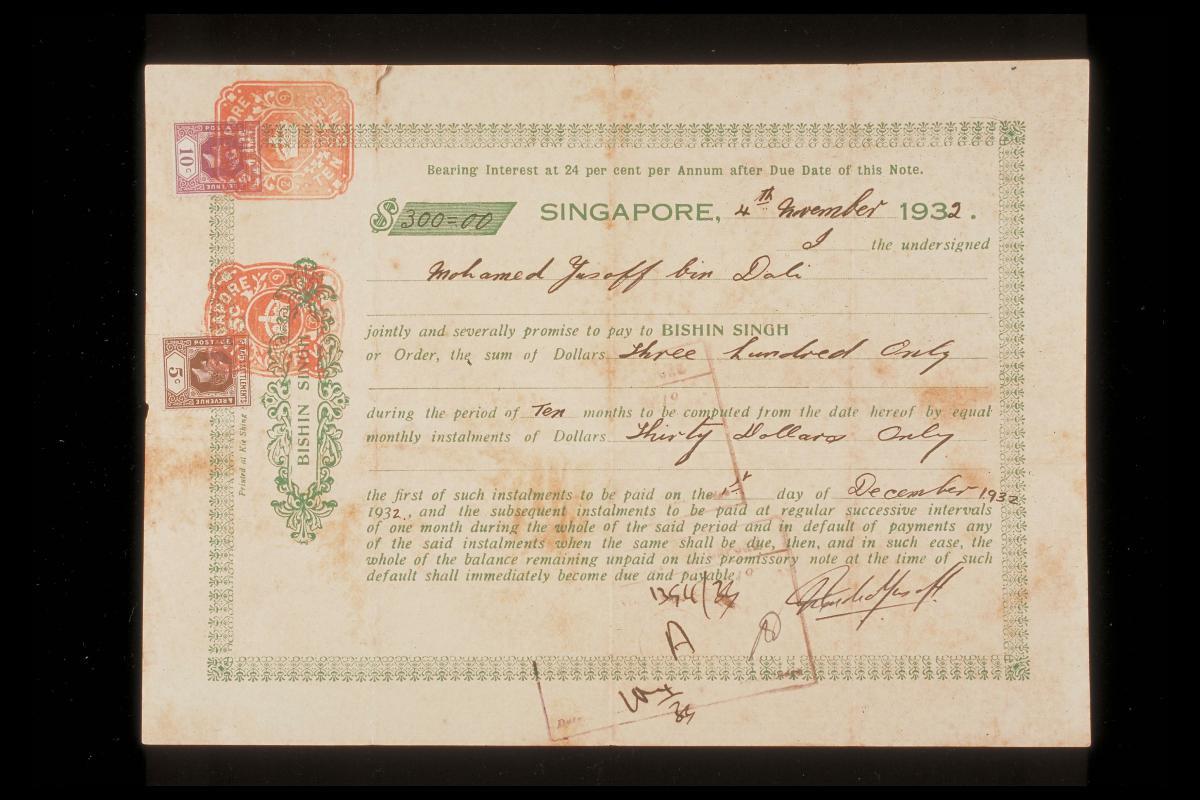 Bearing Interest at 24 per cent per Annum after Due Date of this Note.
$ 300=00 SINGAPORE, 4th November 1932.
I the undersigned
Mohamed Yusoff bin Dali
jointly and severally promise to pay to BISHIN SINGH
or Order, the sum of Dollars Three hundred Only
during the period of Ten months to be computed from the date hereof by equal
monthly instalments of Dollars Thirty Dollars Only
the first of such instalments to be paid on the 1st day of December 1932
1932, and the subsequent instalments to be paid at regular successive intervals
of one month during the whole of the said period and in default of payments any
of the said instalments when the same shall be due, then, and in such ease, the
whole of the balance remaining unpaid on this promissory note at the time of such
default shall immediately become due and payable
1394/34
Date
BISHIN SINGH
Printed at Kie Shing
SINGAPORE
TEN CENTS
POSTAGE
10 c
& REVENUE
POSTAGE
5 c
& REVENUE
SETTLEMENTS